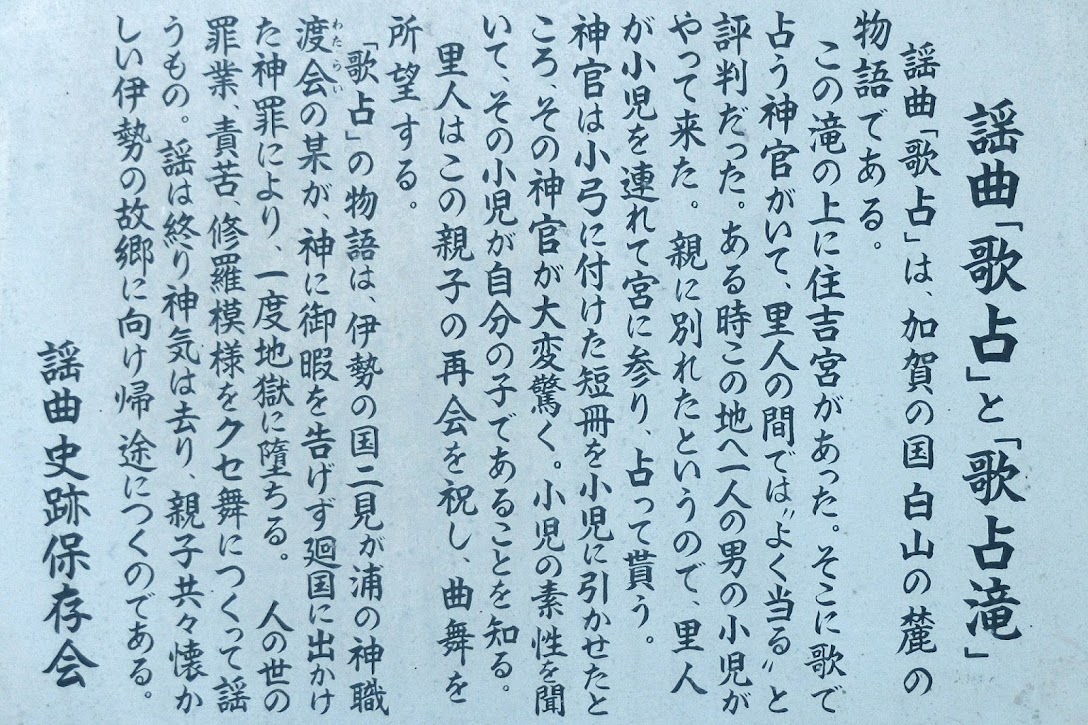 謡曲「歌占」と「歌占滝」
謡曲「歌占」は、加賀の国白山の麓の
物語である。
この滝の上に住吉宮があった。そこに歌で
占う神官がいて、里人の間では〝よく当る〟と
評判だった。ある時この地へ一人の男の小児が
やって来た。親に別れたというので、里人
が小児を連れて宮に参り、占って貰う。
神官は小弓に付けた短冊を小児に引かせたと
ころ、その神官が大変驚く。小児の素性を聞
いて、その小児が自分の子であることを知る。
里人はこの親子の再会を祝し、曲舞を
所望する。
「歌占」の物語は、伊勢の国二見が浦の神職
渡会の某が、神に御暇を告げず廻国に出かけ
わたらい
た神罪により、一度地獄に堕ちる。人の世の
罪業、責苦、修羅模様をクセ舞につくって謡
うもの。謡は終り神気は去り、親子共々懐か
しい伊勢の故郷に向け帰途につくのである。
謡曲史跡保存会